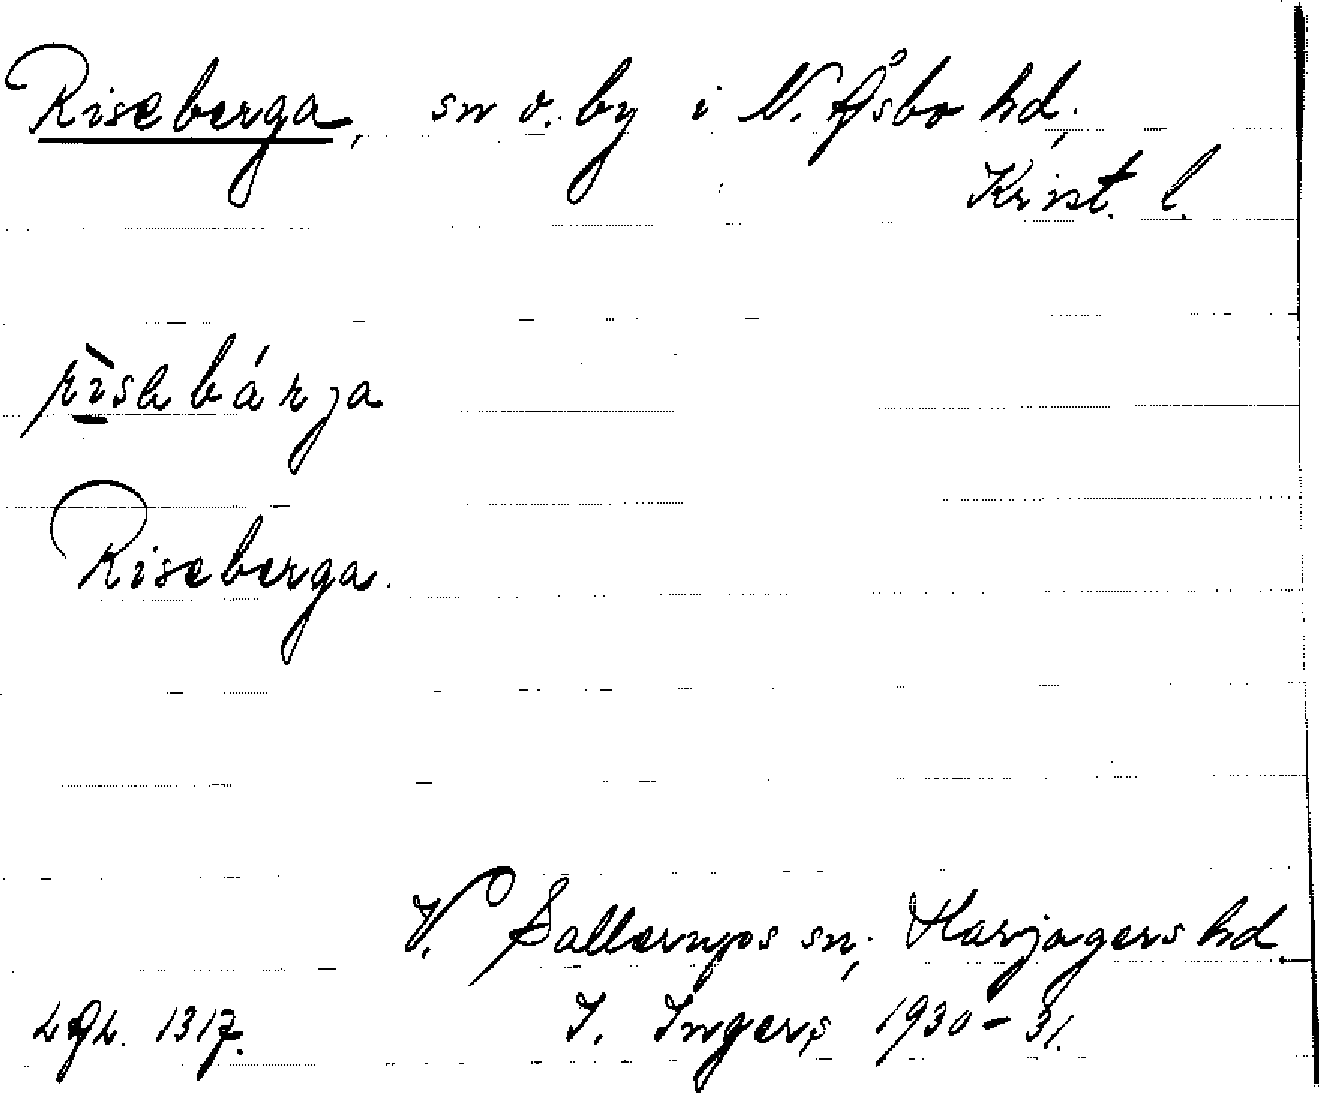 Riseberga, sn o. by i N. Åsbo hd,
Krist. l.
rìsabárja
Riseberga.
V. Sallerups sn, Harjagers hd
LAL. 1317. I. Ingers, 1930-31.